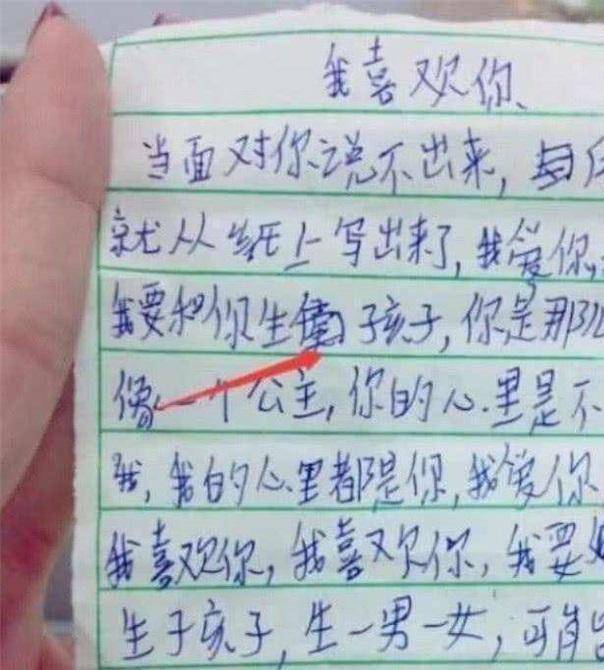 我喜欢你、
当面对你说不出来，
就从纸上写出来了，我爱你，
我要和你生 子孩子，你是那
像一个公主，你的心里是不
我，我的心里都是你，我爱你
我喜欢你，我喜欢你，我要
生子孩子，生一男一女，可